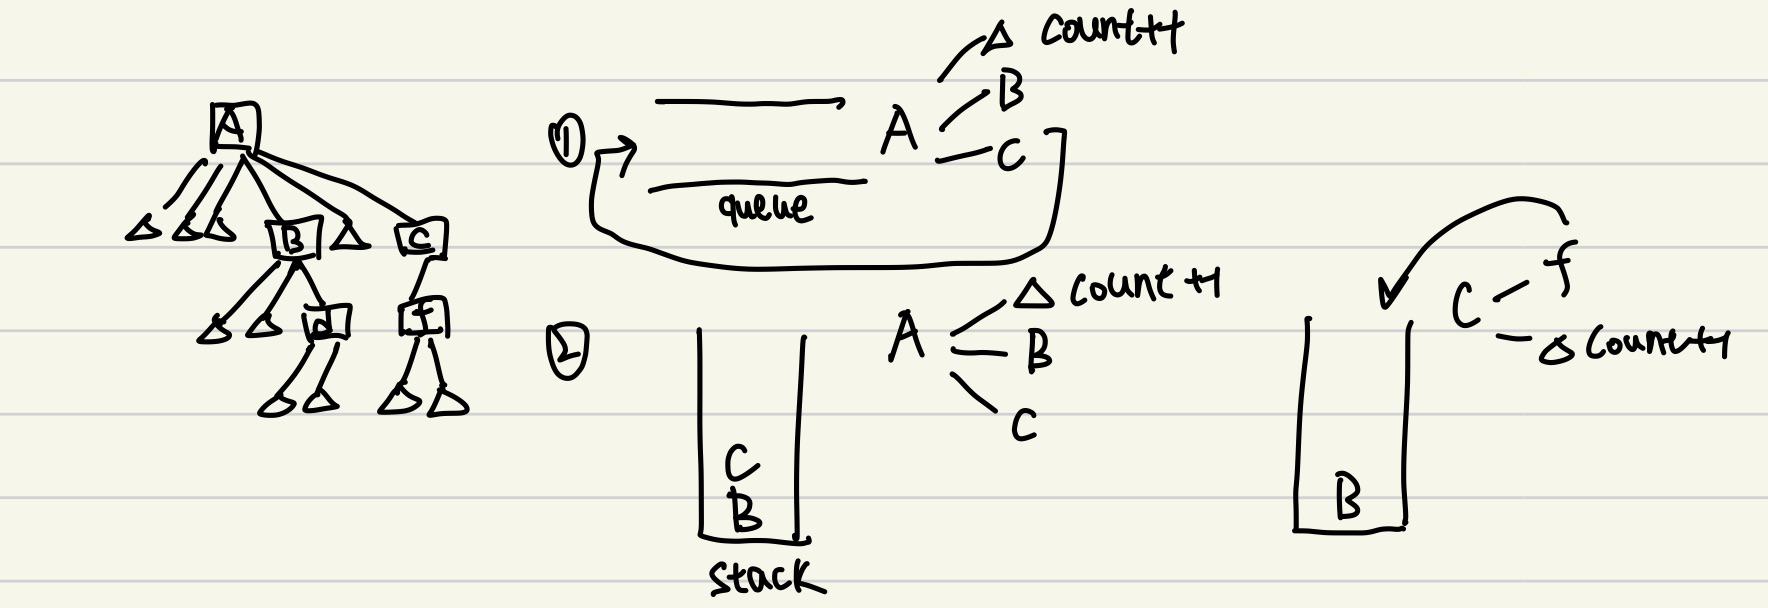 A
B
C
d
f
①
queue
A
count++
B
C
②
C
B
stack
A
count++
B
C
B
C
f
count++